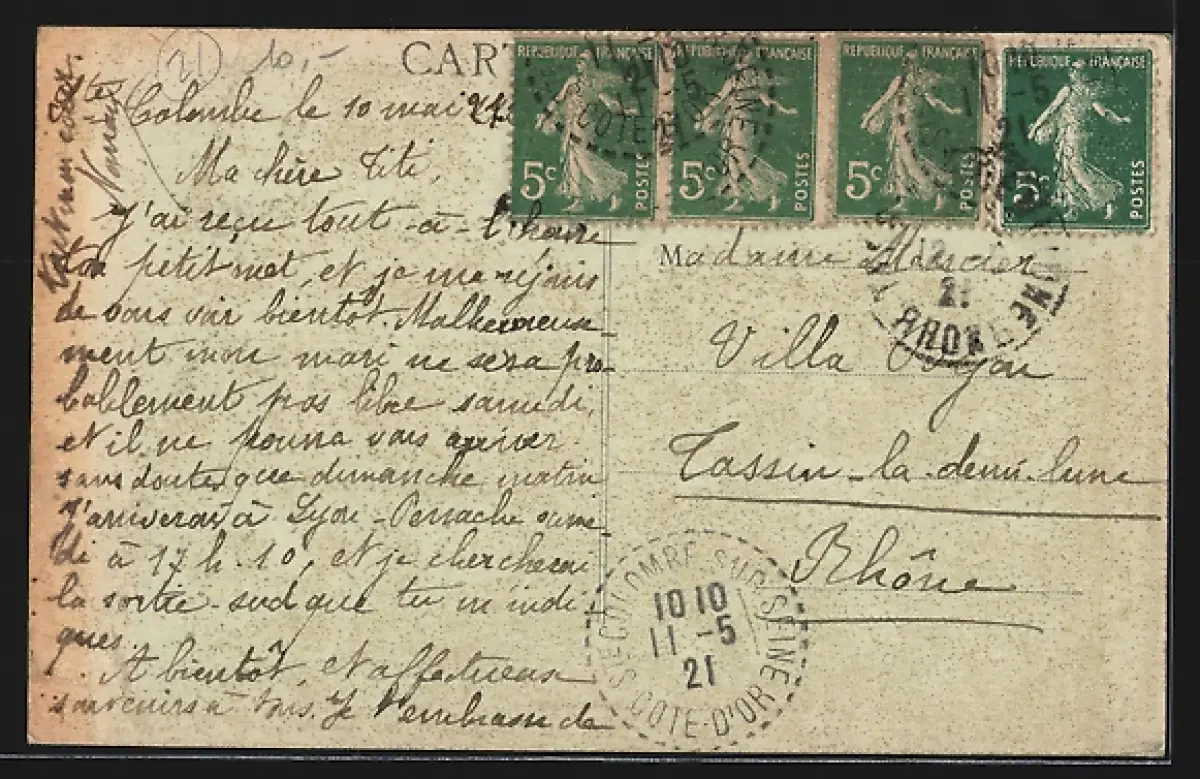 (21) 10,-
CART
Ste Colombe le 10 mai 21
Ma chère Titi,
J'ai reçu tout-à-l'heure
ton petit mot, et je me réjouis
de vous voir bientôt. Malheureuse-
ment mon mari ne sera pro-
bablement pas libre samedi,
et il ne pourra vous arriver
sans doute, que dimanche matin
J'arriverai à Lyon-Perrache same
di à 17 h. 10, et je chercherai
la sortie-sud que tu m'indi-
ques.
A bientôt, et affectueux
souvenirs à tous. Je t'embrasse de
tout mon cœur.
REPUBLIQUE FRANÇAISE
5c
POSTES
REPUBLIQUE FRANÇAISE
5c
POSTES
REPUBLIQUE FRANÇAISE
5c
POSTES
REPUBLIQUE FRANÇAISE
5c
POSTES
Madame Mercier
Villa
Tassin-la-demi-lune
Rhône
12
21
RHONE
STE COLOMBE-SUR-SEINE
10 10
11 -5
21
COTE-D'OR